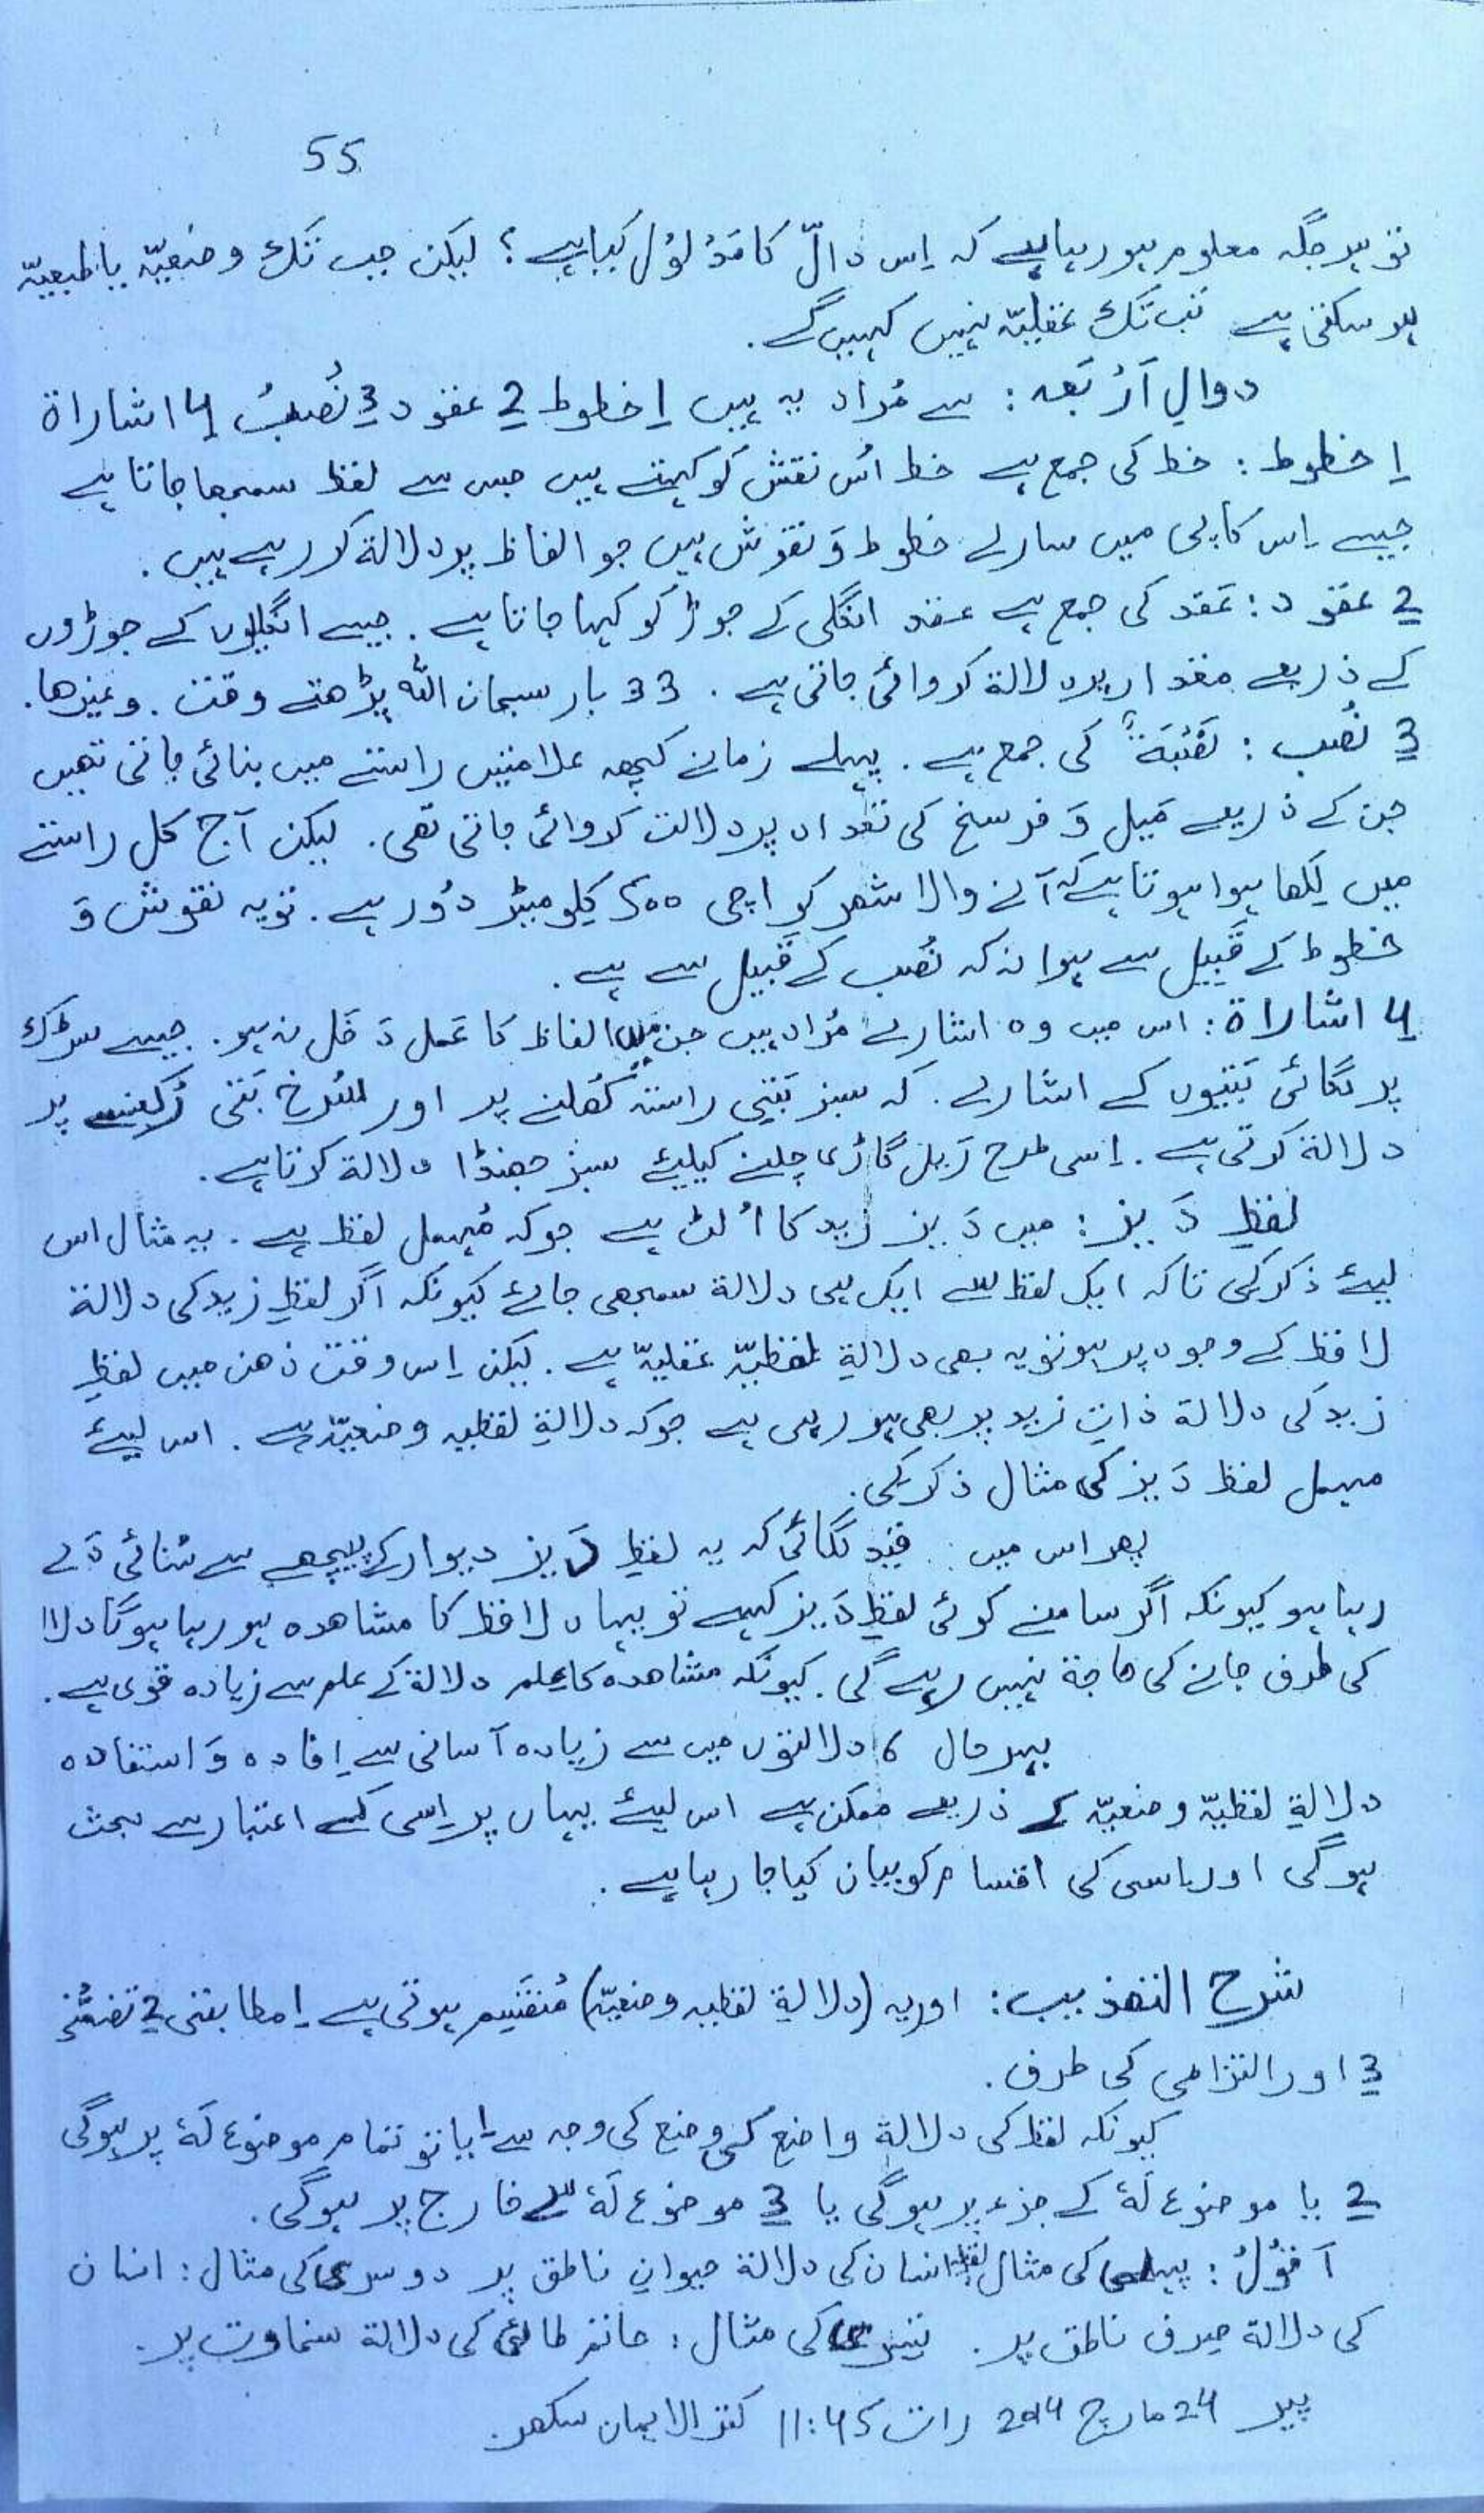 55
تو ہر جگہ معلوم ہو رہا ہے کہ اِس دالّ کا مَدْلُوْل کیا ہے؟ لیکن جب تَک وضَعِیّہ یا طبعیّہ
ہو سکتی ہے تَب تَک عَقلِیّہ نہیں کہیں گے.
دوالِ اَرْبَعہ: سے مُراد یہ ہیں 1 خطوط 2 عقود 3 نُصَبْ 4 اشاراۃ
1 خطوط: خط کی جمع ہے خط اُس نقش کو کہتے ہیں جس سے لفظ سمجھا جاتا ہے
جیسے اِس کاپی میں سارے خطوط وَ نقوش ہیں جو الفاظ پر دلالۃ کر رہے ہیں.
2 عقود: عَقد کی جمع ہے عقد انگلی کے جوڑ کو کہا جاتا ہے. جیسے انگلیوں کے جوڑوں
کے ذریعے مقدار پر دلالۃ کروائی جاتی ہے. 33 بار سبحان اللہ پڑھتے وقت. وغیرھا.
3 نُصَب: نَصْبَةٌ کی جمع ہے. پہلے زمانے کچھ علامتیں راستے میں بنائی جاتی تھیں
جن کے ذریعے مَیل وَ فرسخ کی تعداد پر دلالت کروائی جاتی تھی. لیکن آج کل راستے
میں لِکھا ہوا ہوتا ہے کہ آنے والا شھر کراچی 500 کِلو میٹر دُور ہے. تو یہ نقوش وَ
خطوط کے قَبِیل سے ہوا نہ کہ نُصَب کے قَبیل سے ہے.
4 اشاراۃ: اس میں وہ اشارے مُراد ہیں جن میں الفاظ کا عَمل دَخَل نہ ہو. جیسے سڑک
پر لگائی بَتّیوں کے اشارے. کہ سبز بَتّی راستہ کُھلنے پر اور سُرخ بَتّی رُکنے پر
دلالۃ کرتی ہے. اِسی طرح رَیل گاڑی چلنے کیلیئے سبز جھنڈا دلالۃ کرتا ہے.
لفظِ دَیز: میں دَیز زید کا اُلٹ ہے جو کہ مُہمل لفظ ہے. یہ مثال اس
لیئے ذکر کی تا کہ ایک لفظ سے ایک ہی دلالۃ سمجھی جائے کیونکہ اگر لفظِ زید کی دلالۃ
لافظ کے وجود پر ہو تو یہ بھی دلالۃِ لفظیّہ عقلیّہ ہے. لیکن اِس وقت ذھن میں لفظِ
زید کی دلالۃ ذاتِ زید پر بھی ہو رہی ہے جو کہ دلالۃِ لفظیہ وضعیّہ ہے. اس لیئے
مہمل لفظ دَیز کی مثال ذکر کی.
پھر اس میں قَید لگائی کہ یہ لفظِ دَیز دیوار کے پیچھے سے سُنائی دَے
رہا ہو کیونکہ اگر سامنے کوئی لفظِ دَیز کہے تو یہاں لافظ کا مشاھدہ ہو رہا ہوگا دلالۃ
کی طرف جانے کی حاجۃ نہیں رہے گی. کیونکہ مشاھدہ کا عِلم دلالۃ کے علم سے زیادہ قوی ہے.
بہر حال 6 دلالتوں میں سے زیادہ آسانی سے اِفادہ وَ استفادہ
دلالۃِ لفظیّہ وضعیّہ کے ذریعے ممکن ہے اس لیئے یہاں پر اِسی کے اعتبار سے بحث
ہوگی اور اسی کی اقسام کو بیان کیا جا رہا ہے.
شرح التھذیب: اور یہ (دلالۃِ لفظیہ وضعیّہ) مُنقَسِم ہوتی ہے 1 مطابقتی 2 تضمُّنی
3 اور التزامی کی طرف.
کیونکہ لفظ کی دلالۃ واضِع کی وضع کی وجہ سے 1 یا تو تمام موضوع لَہٗ پر ہوگی
2 یا موضوع لَہٗ کے جزء پر ہوگی یا 3 موضوع لَہٗ سے خارج پر ہوگی.
اَقُوْلُ: پہلی کی مثال لفظ انسان کی دلالۃ حیوانِ ناطق پر دوسری کی مثال: انسان
کی دلالۃ صِرف ناطق پر. تیسری کی مثال: حاتم طائی کی دلالۃ سخاوت پر.
پیر 24 مارچ 2014 رات 11:45 کنز الایمان سکھر.